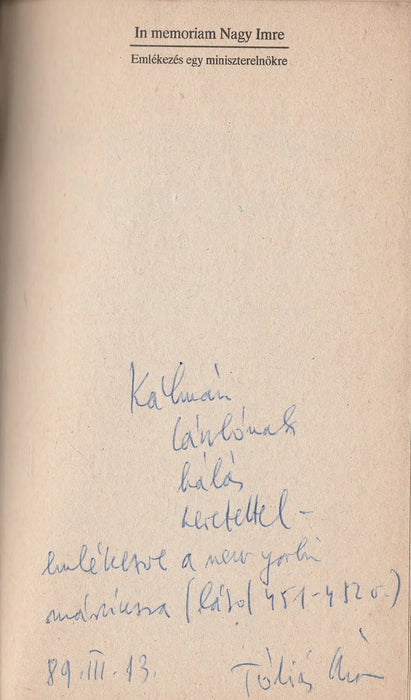 In memoriam Nagy Imre
Emlékezés egy miniszterelnökre
Kálmán
Lászlónak
hálás
szeretettel –
emlékezve a new yorki
(lásd 451-452 o.)
89. III. 13. Tóbiás Áron